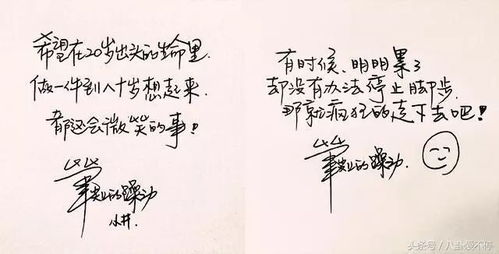 希望在20岁出头的生命里.
做一件到八十岁想起来.
都还会微笑的事!
笔尖上的躁动
小井.
有时候、明明累了
却没有办法停止脚步.
那就疯狂的走下去吧!
笔尖上的躁动
头条号/八卦很不停